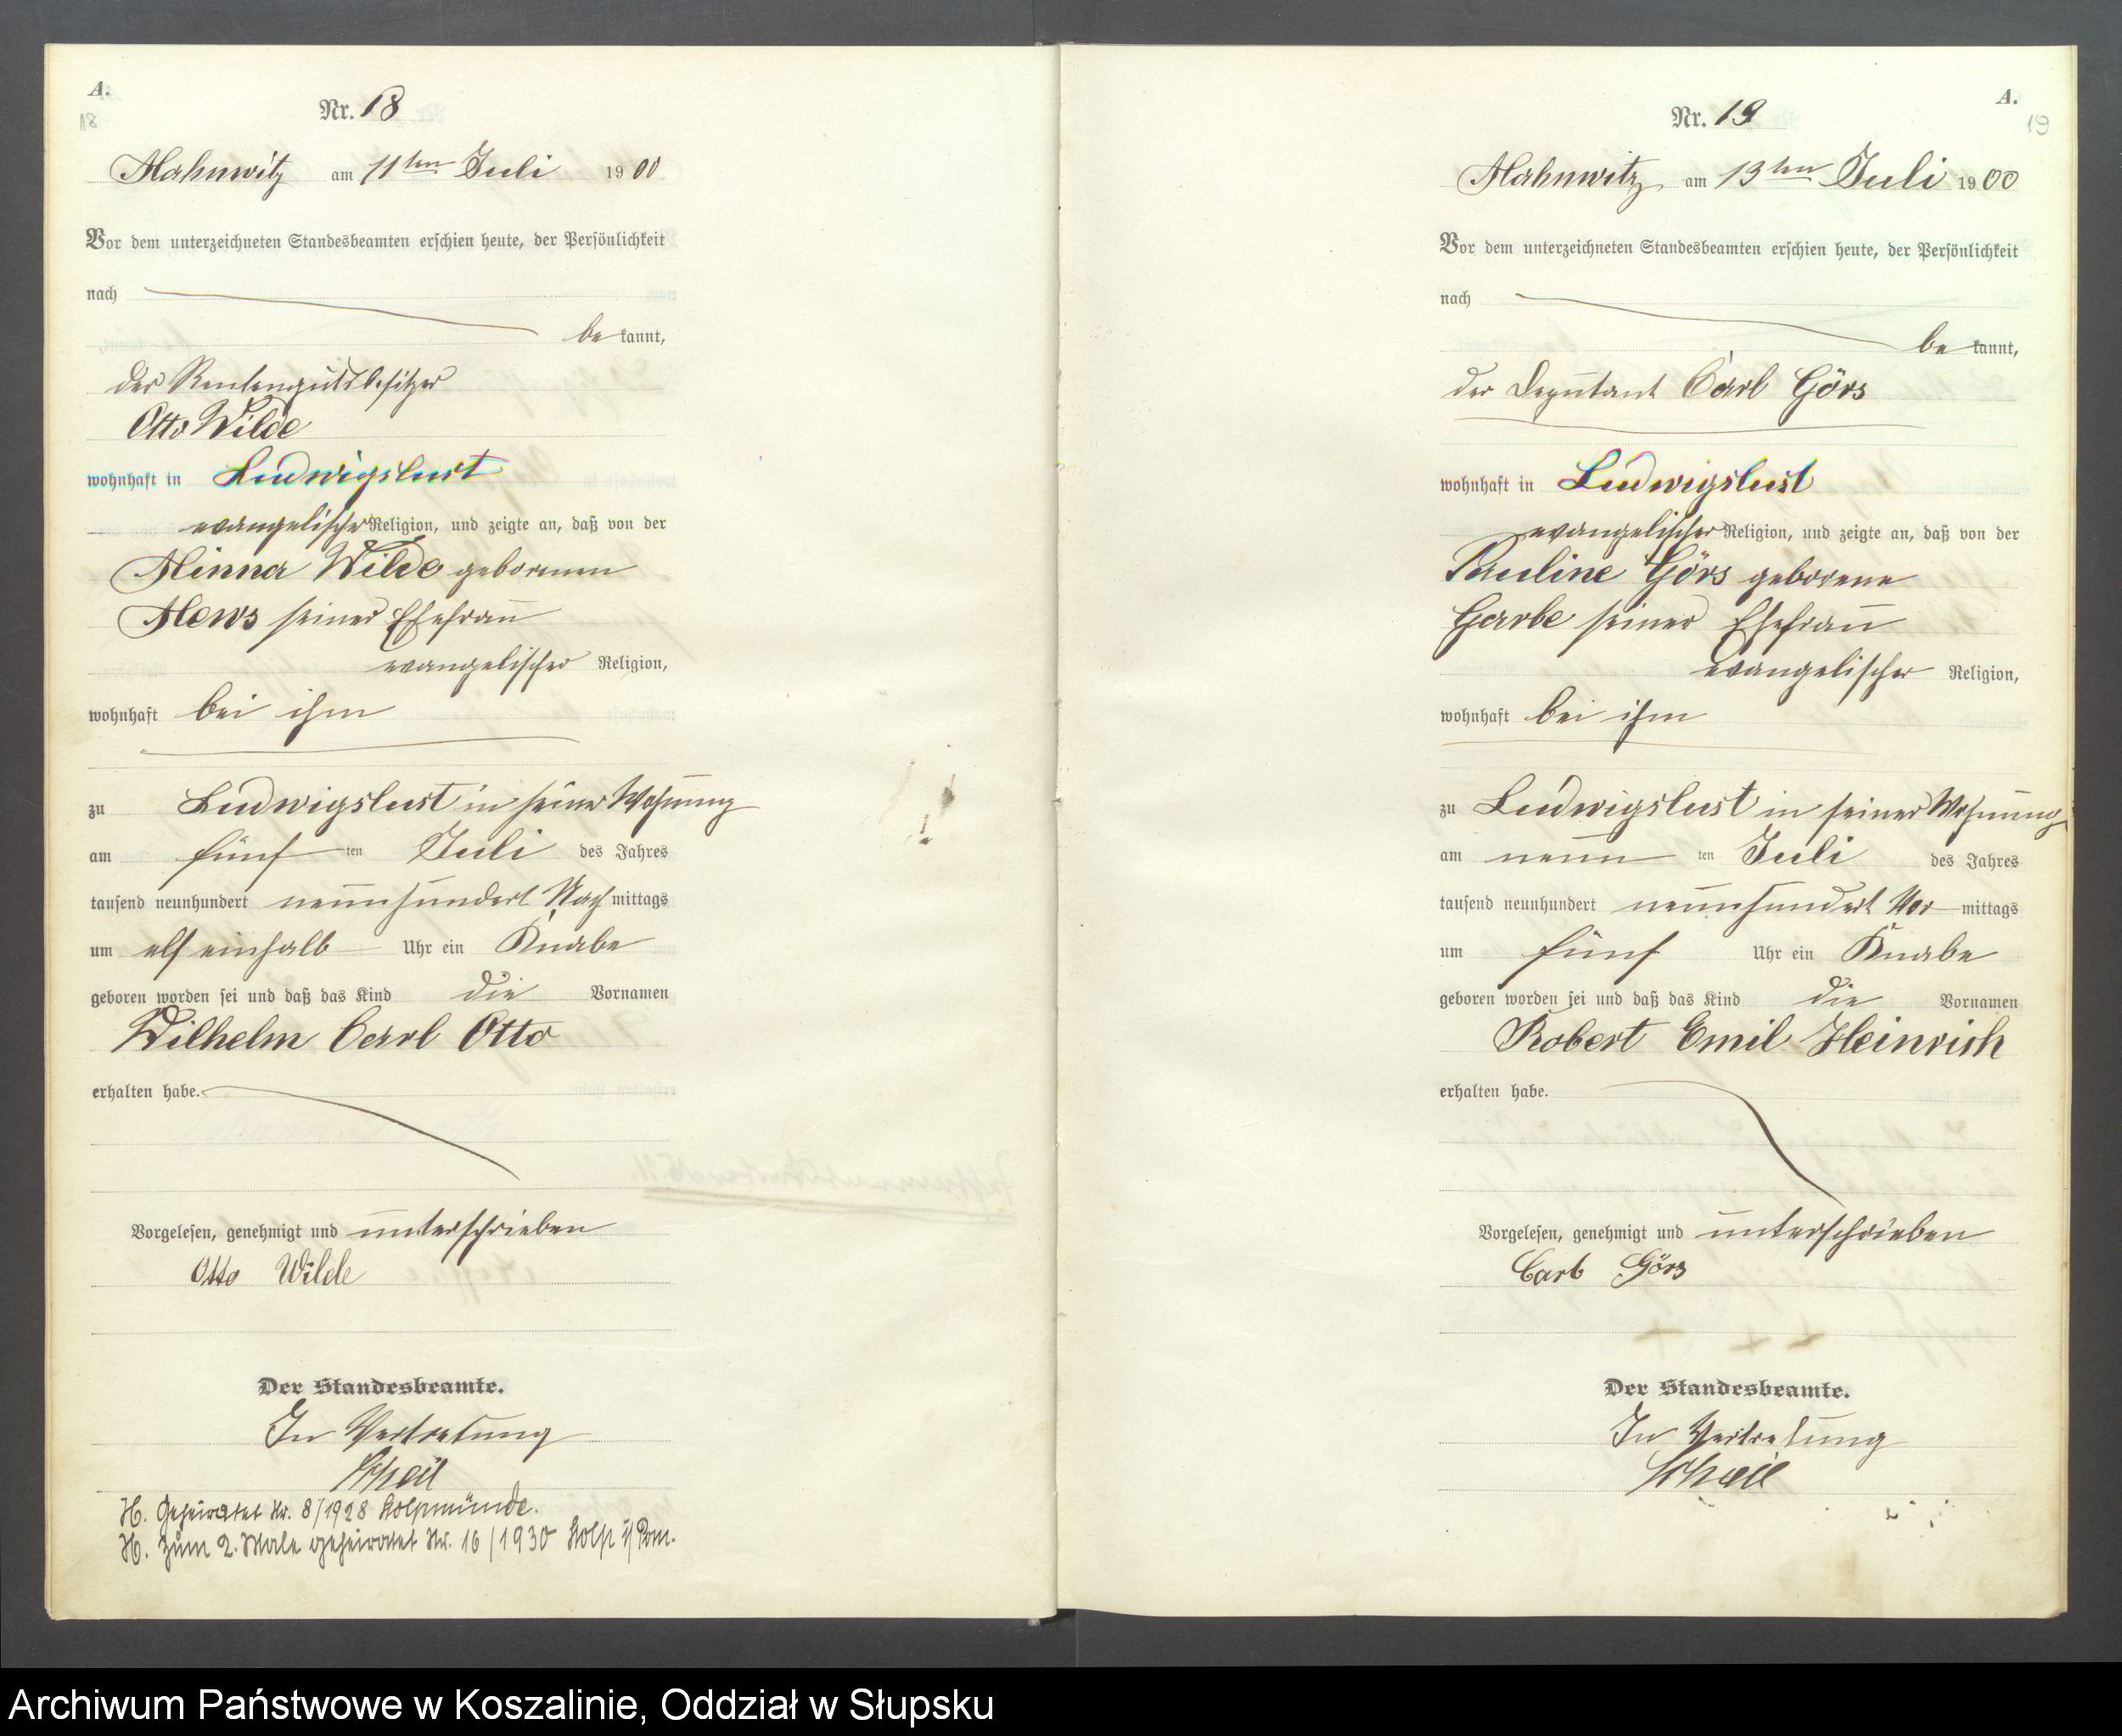 A.
18
Nr. 18
Mahnwitz am 11ten Juli 1900
Vor dem unterzeichneten Standesbeamten erschien heute, der Persönlichkeit
nach
be kannt,
der Rentengutsbesitzer
Otto Wilde
wohnhaft in Ludwigslust
evangelischer Religion, und zeigte an, daß von der
Minna Wilde geborenen
Mews seiner Ehefrau
evangelischer Religion,
wohnhaft bei ihm
zu Ludwigslust in seiner Wohnung
am fünf ten Juli des Jahres
tausend neunhundert neunhundert Nach mittags
um elf einhalb Uhr ein Knabe
geboren worden sei und daß das Kind die Vornamen
Wilhelm Carl Otto
erhalten habe.
Vorgelesen, genehmigt und unterschrieben
Otto Wilde
Der Standesbeamte.
In Vertretung
H. Geheiratet Nr. 8/1928 Stolpmünde.
H. Zum 2. Male geheiratet Nr. 16/1930 Stolp i/Pom.
A.
19
Nr. 19
Mahnwitz am 13ten Juli 1900
Vor dem unterzeichneten Standesbeamten erschien heute, der Persönlichkeit
nach
be kannt,
der Deputant Carl Görs
wohnhaft in Ludwigslust
evangelischer Religion, und zeigte an, daß von der
Pauline Görs geborene
Garbe seiner Ehefrau
evangelischer Religion,
wohnhaft bei ihm
zu Ludwigslust in seiner Wohnung
am neun ten Juli des Jahres
tausend neunhundert neunhundert Vor mittags
um fünf Uhr ein Knabe
geboren worden sei und daß das Kind die Vornamen
Robert Emil Heinrich
erhalten habe.
Vorgelesen, genehmigt und unterschrieben
Carl Görs
Der Standesbeamte.
In Vertretung
Archiwum Państwowe w Koszalinie, Oddział w Słupsku